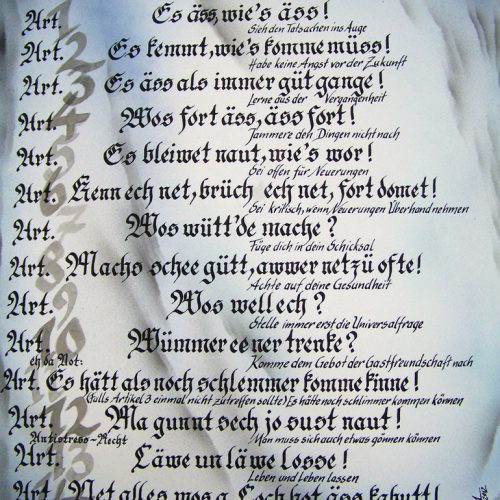 Art. 1 Es äss, wie's äss!
Sieh den Tatsachen ins Auge
Art. 2 Es kemmt, wie's komme müss!
Habe keine Angst vor der Zukunft
Art. 3 Es äss als immer gütgange!
Lerne aus der Vergangenheit
Art. 4 Wos fort äss, äss fort!
Jammere den Dingen nicht nach
Art. 5 Es bleiwet naut, wie's wor!
Sei offen für Neuerungen
Art. 6 Kenn ech net, brüch ech net, fort domet!
Sei kritisch, wenn Neuerungen Überhand nehmen
Art. 7 Wos wütt'de mache?
Füge dich in dein Schicksal
Art. 8 Machs schee gütt, awwer net zü ofte!
Achte auf deine Gesundheit
Art. 9 Wos well ech?
Stelle immer erst die Universalfrage
Art. 10 Wümmer ee ner trenke?
Komme dem Gebot der Gastfreundschaft nach
eh da Not:
Art. 11 Es hätt als noch schlemmer komme kinne!
(falls Artikel 3 einmal nicht zutreffen sollte) Es hätte noch schlimmer kommen können
Art. 12 Ma gunnt sech jo sust naut!
Antistress-Recht Man muss sich auch etwas gönnen können
Art. 13 Läwe un läwe losse!
Leben und Leben lassen
Art. Net alles wos